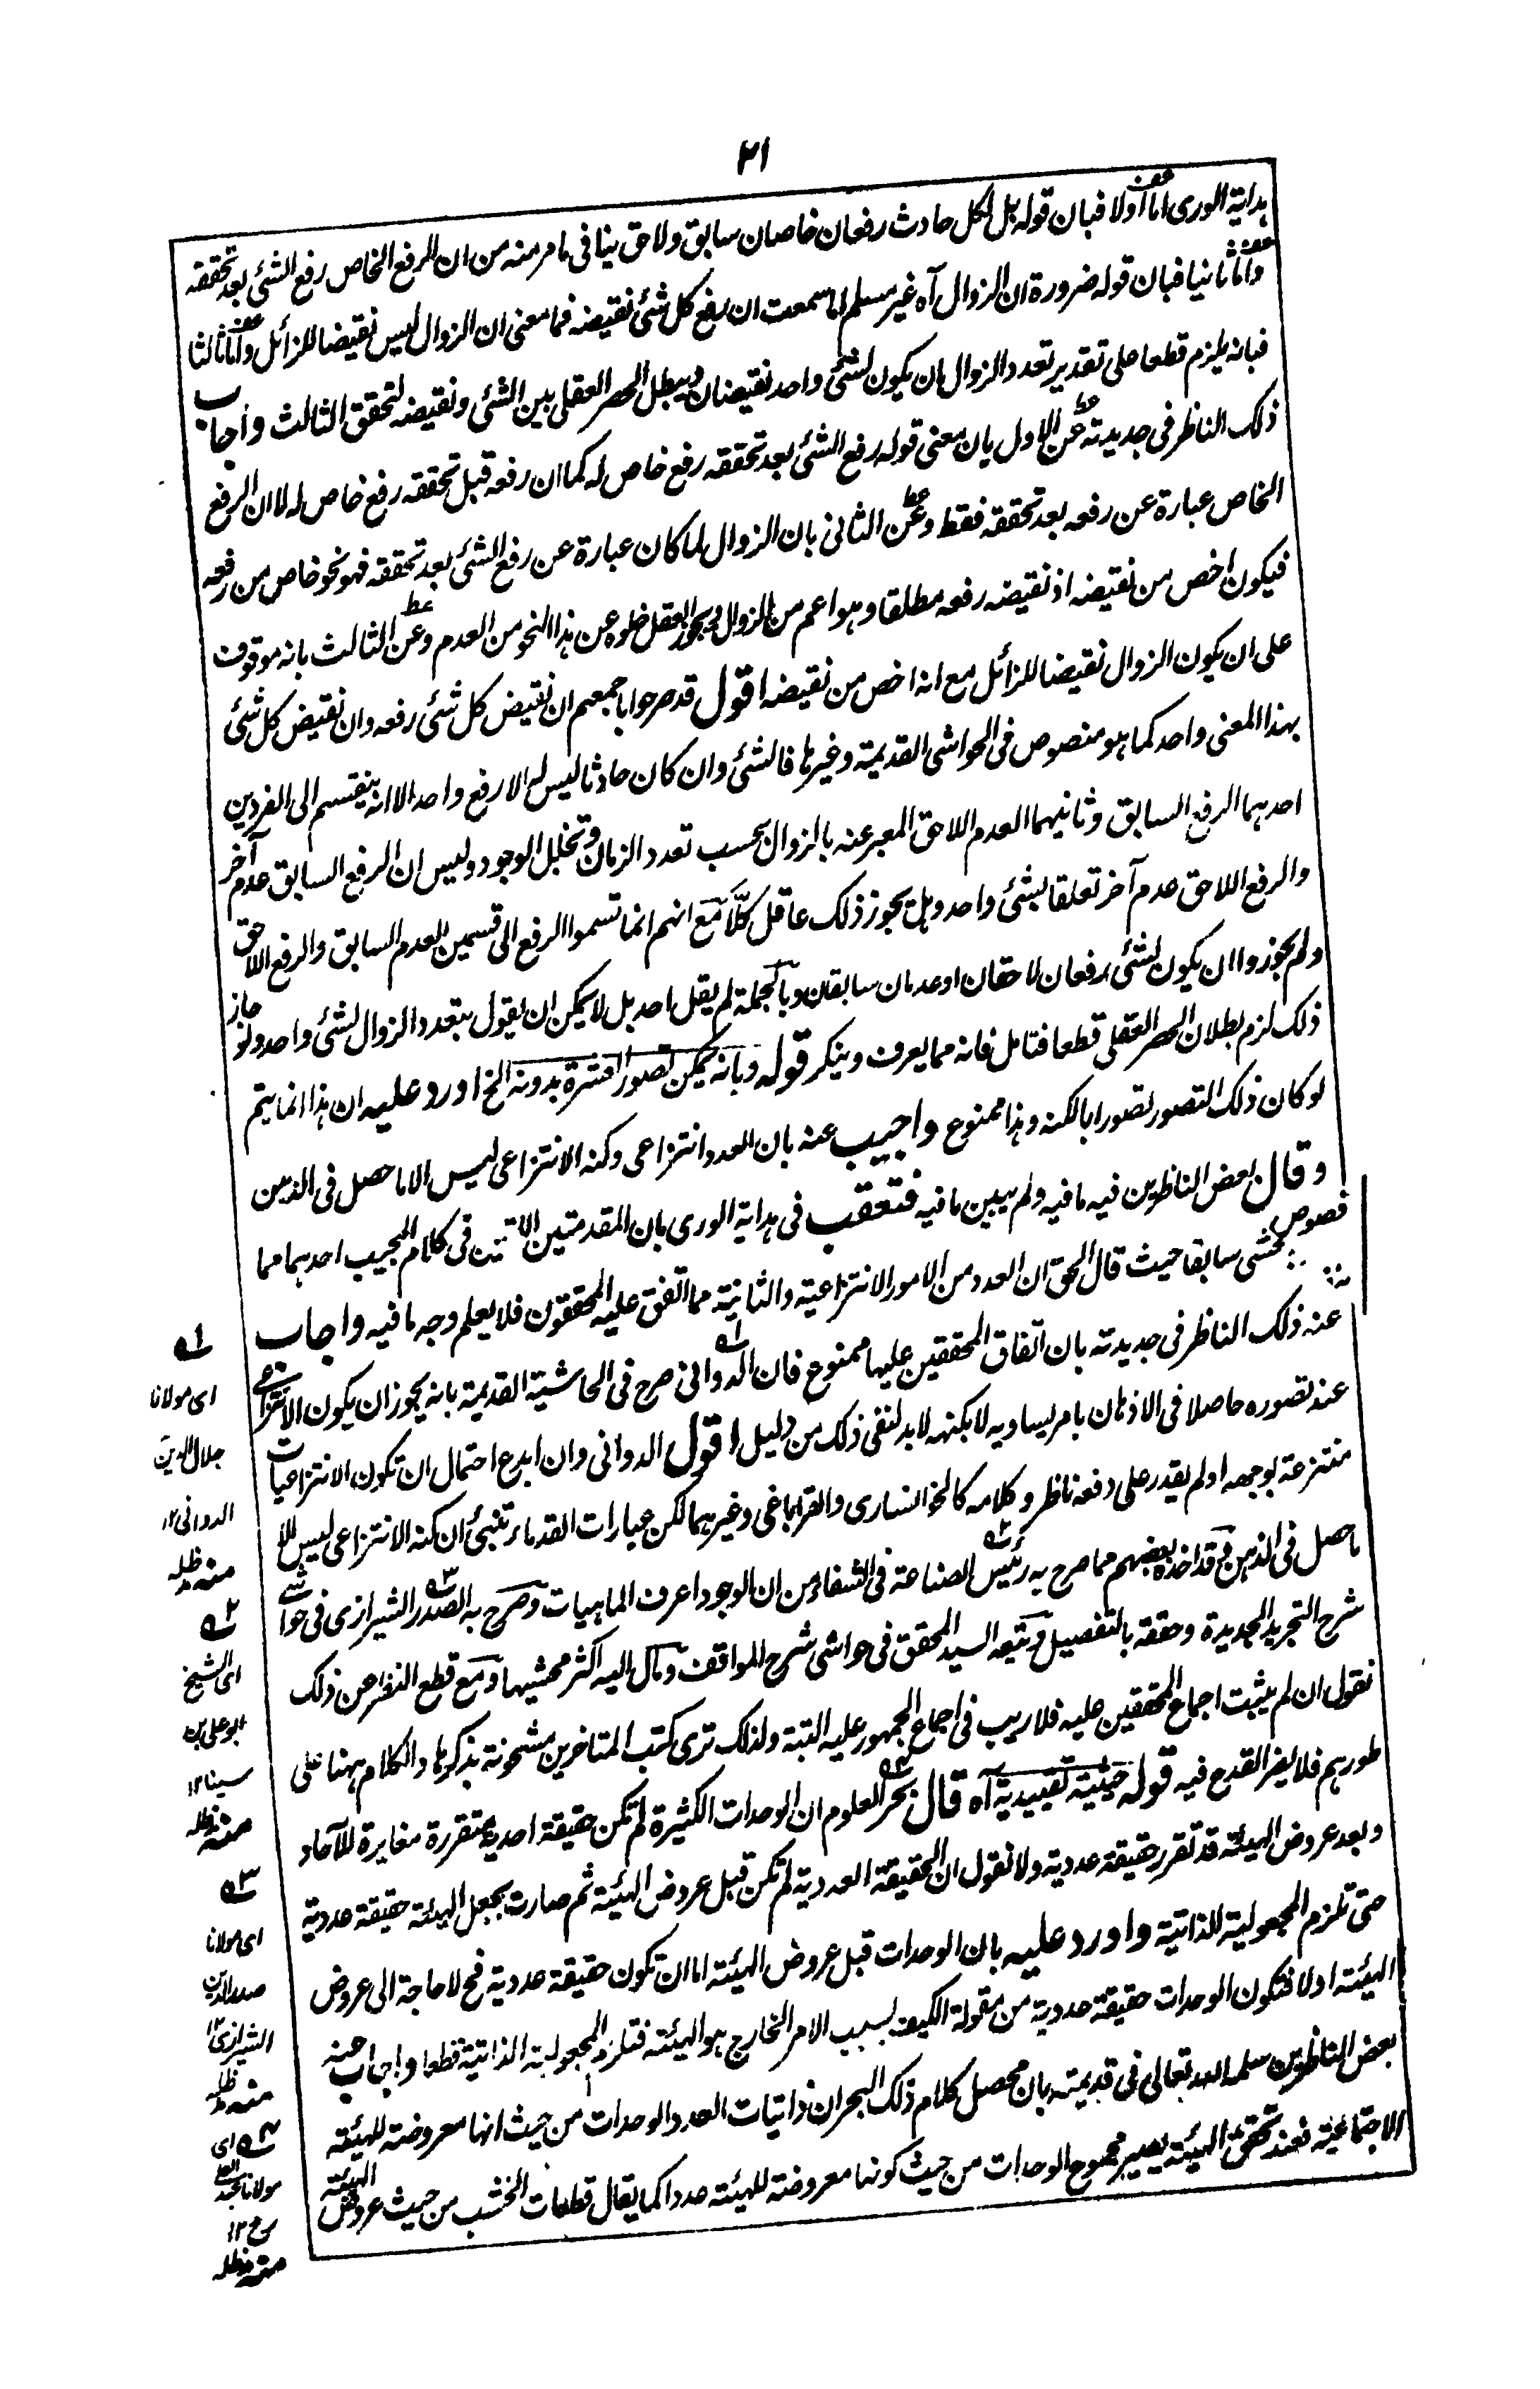 ٢١
هداية الورى اما اولا فبان قوله بل لكل حادث رفعان خاصان سابق ولاحق ينافى ما مر منه من ان الرفع الخاص رفع الشئ بعد تحققه
واما ثانيا فبان قوله ضرورة ان الزوال آه غير مسلم اما سمعت ان رفع كل شئ نقيضه فما معنى ان الزوال ليس نقيضا للزائل واما ثالثا
فبانه يلزم قطعا على تقدير تعدد الزوال ان يكون لشئ واحد نقيضان ويبطل الحصر العقلى بين الشئ ونقيضه لتحقق الثالث واجاب
ذلك الناظر فى جديدته عن الاول بان معنى قوله رفع الشئ بعد تحققه رفع خاص له كما ان رفعه قبل تحققه رفع خاص له لا ان الرفع
الخاص عبارة عن رفعه بعد تحققه فقط وعن الثانى بان الزوال لما كان عبارة عن رفع الشئ بعد تحققه فهو نحو خاص من رفعه
فيكون اخص من نقيضه اذ نقيضه رفعه مطلقا وهو اعم من الزوال ويجوز العقل خلوه عن هذا النحو من العدم وعن الثالث بانه موقوف
على ان يكون الزوال نقيضا للزائل مع انه اخص من نقيضه اقول قد صرحوا باجمعهم ان نقيض كل شئ رفعه وان نقيض كل شئ
بهذا المعنى واحد كما هو منصوص فى الحواشى القديمة وغيرها فالشئ وان كان حادثا ليس له الا رفع واحد الا انه ينقسم الى الفردين
احدهما الرفع السابق وثانيهما العدم اللاحق المعبر عنه بالزوال بحسب تعدد الزمان وتخلل الوجود وليس ان الرفع السابق عدم آخر
والرفع اللاحق عدم آخر تعلقا بشئ واحد وهل يجوز ذلك عاقل كلا مع انهم انما قسموا الرفع الى قسمين العدم السابق والرفع اللاحق
ولم يجوزوا ان يكون لشئ رفعان لاحقان او عدمان سابقان وبالجملة لم يقل احد بل لا يمكن ان يقول بتعدد الزوال لشئ واحد ولو جاز
ذلك لزم بطلان الحصر العقلى قطعا فتامل فانه مما يعرف وينكر قوله وبانه يمكن تصور العشرة بدونه الخ اورد عليه ان هذا انما يتم
لو كان ذلك التصور تصورا بالكنه وهذا ممنوع واجيب عنه بان العدد انتزاعى وكنه الانتزاعى ليس الا ما حصل فى الذهن
وقال بعض الناظرين فيه ما فيه ولم يبين ما فيه فتعقب فى هداية الورى بان المقدمتين فى كلام المجيب احدهما مما
نصوص محشى سابقا حيث قال الحق ان العدد من الامور الانتزاعية والثانية مما اتفق عليه المحققون فلا يعلم وجه ما فيه واجاب
عنه ذلك الناظر فى جديدته بان اتفاق المحققين عليها ممنوع فان الدوانى صرح فى الحاشية القديمة بانه يجوز ان يكون الانتزاعى
عند تصوره حاصلا فى الاذهان بامر يساويه لا بكنهه لابد لنفى ذلك من دليل اقول الدوانى وان ابدع احتمال ان تكون الانتزاعيات
منتزعة بوجهه اولم يقدر على دفعه ناظر وكلامه والقراباغى وغيرهما لكن عبارات القدماء تنبئ ان كنه الانتزاعى ليس الا
ما حصل فى الذهن وقد اخذه بعضهم مما صرح به رئيس الصناعة فى الشفاء من ان الوجود اعرف الماهيات وصرح به الصدر الشيرازى فى حواشى
شرح التجريد الجديدة وحققه بالتفصيل وتبعه السيد المحقق فى حواشى شرح المواقف ومال اليه اكثر محشيها ومع قطع النظر عن ذلك
نقول ان لم يثبت اجماع المحققين عليه فلا ريب فى اجماع الجمهور عليه البتة ولذلك ترى كتب المتاخرين مشحونة بذكرها والكلام ههنا على
طورهم فلا يضر القدح فيه قوله حيثية تقييدية آه قال بحر العلوم ان الوحدات الكثيرة لم تكن حقيقة احدية متقررة مغايرة للآحاد
وبعد عروض الهيئة قد تقرر حقيقة عددية ولا نقول ان الحقيقة العددية لم تكن قبل عروض الهيئة ثم صارت بجعل الهيئة حقيقة عددية
حتى تلزم المجعولية الذاتية واورد عليه بان الوحدات قبل عروض الهيئة اما ان تكون حقيقة عددية فح لا حاجة الى عروض
الهيئة اولا فتكون الوحدات حقيقة عددية من مقولة الكيف بسبب الامر الخارج هو الهيئة فتلزم المجعولية الذاتية قطعا واجاب عنه
بعض الناظرين سلمه الله تعالى فى قديمته بان محصل كلام ذلك البحر ان ذاتيات العدد الوحدات من حيث انها معروضة للهيئة
الاجتماعية فعند تحقق الهيئة يصير مجموع الوحدات من حيث كونها معروضة للهيئة عددا كما يقال قطعات الخشب من حيث عروض الهيئة
١ه
اى مولانا
جلال الدين
الدوانى ١٢
منه مد ظله
٢ه
اى الشيخ
ابو على بن
سينا ١٢
منه مد ظله
٣ه
اى مولانا
صدر الدين
الشيرازى ١٢
منه مد ظله
٤ه اى
مولانا عبد العلى
رح ١٢
منه مد ظله